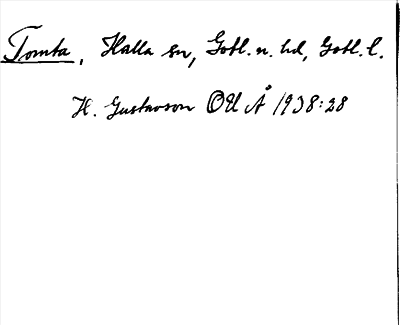 Tomta, Halla sn, Gotl. n. hd, Gotl. l.
H. Gustavson OUÅ 1938:28